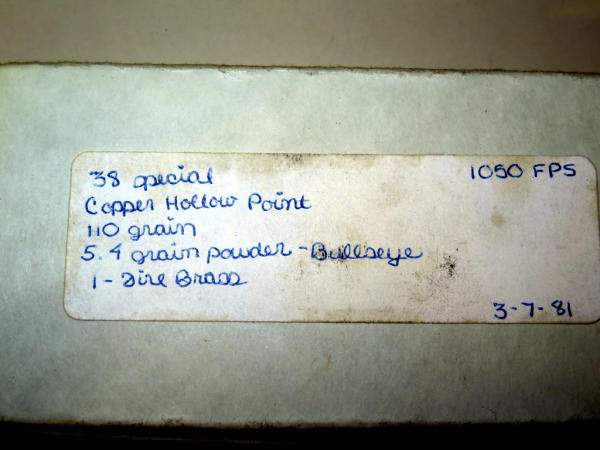 38 special
1050 FPS
Copper Hollow Point
110 grain
5.4 grain powder - Bullseye
1 - Fire Brass
3-7-81